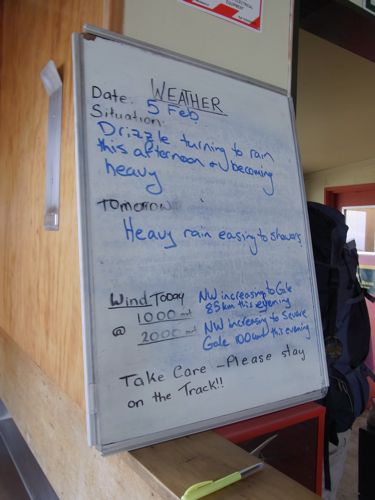 WEATHER
Date. 5 Feb
Situation:
Drizzle turning to rain
this afternoon & becoming
heavy
Tomorrow
Heavy rain easing to showers
Wind Today
@ 1000 mt
NW increasing to Gale
85km this evening
2000 mt
NW increasing to Severe
Gale 100km this evening
Take Care - Please stay
on the Track!!